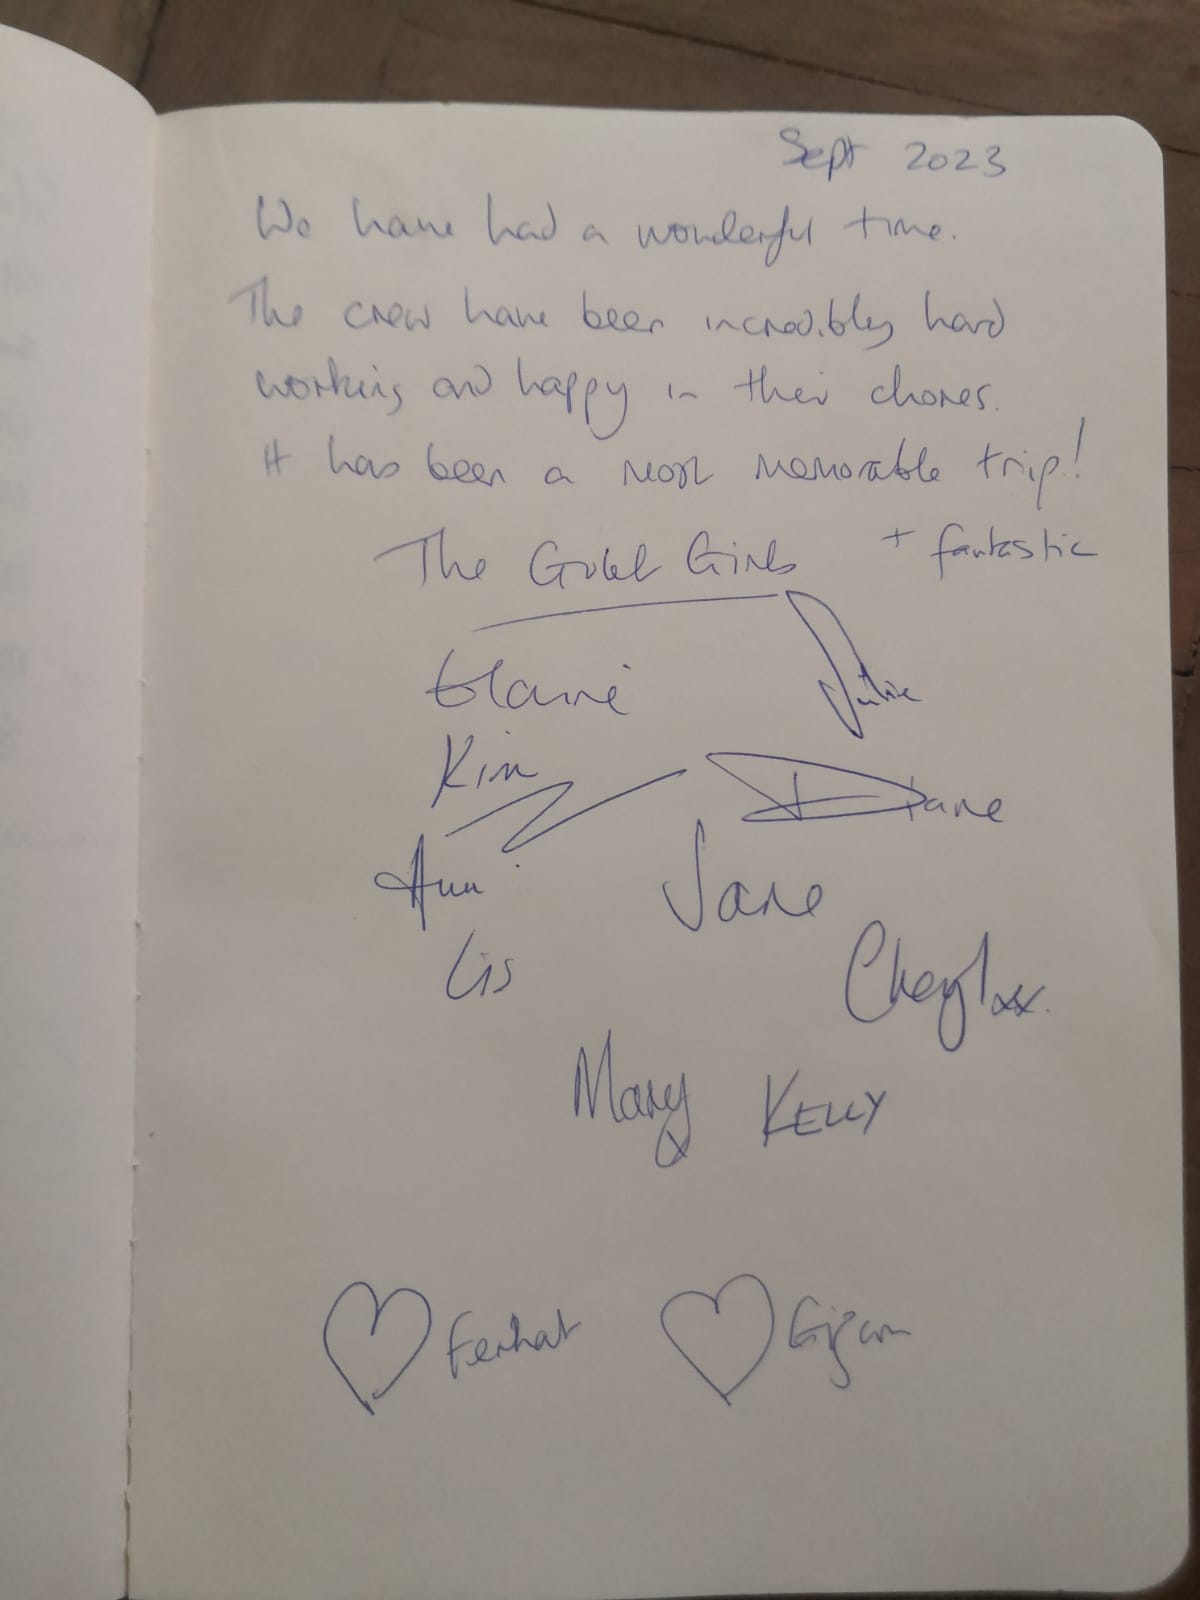 Sept 2023
We have had a wonderful time.
The crew have been incredibly hard
working and happy in their chores.
It has been a most memorable trip!
+ fantastic
The Gulet Girls
Elaine
Julie
Kim
Diane
Ann
Jane
Lis
Cheryl xx.
Mary KELLY
Ferhat Gizem